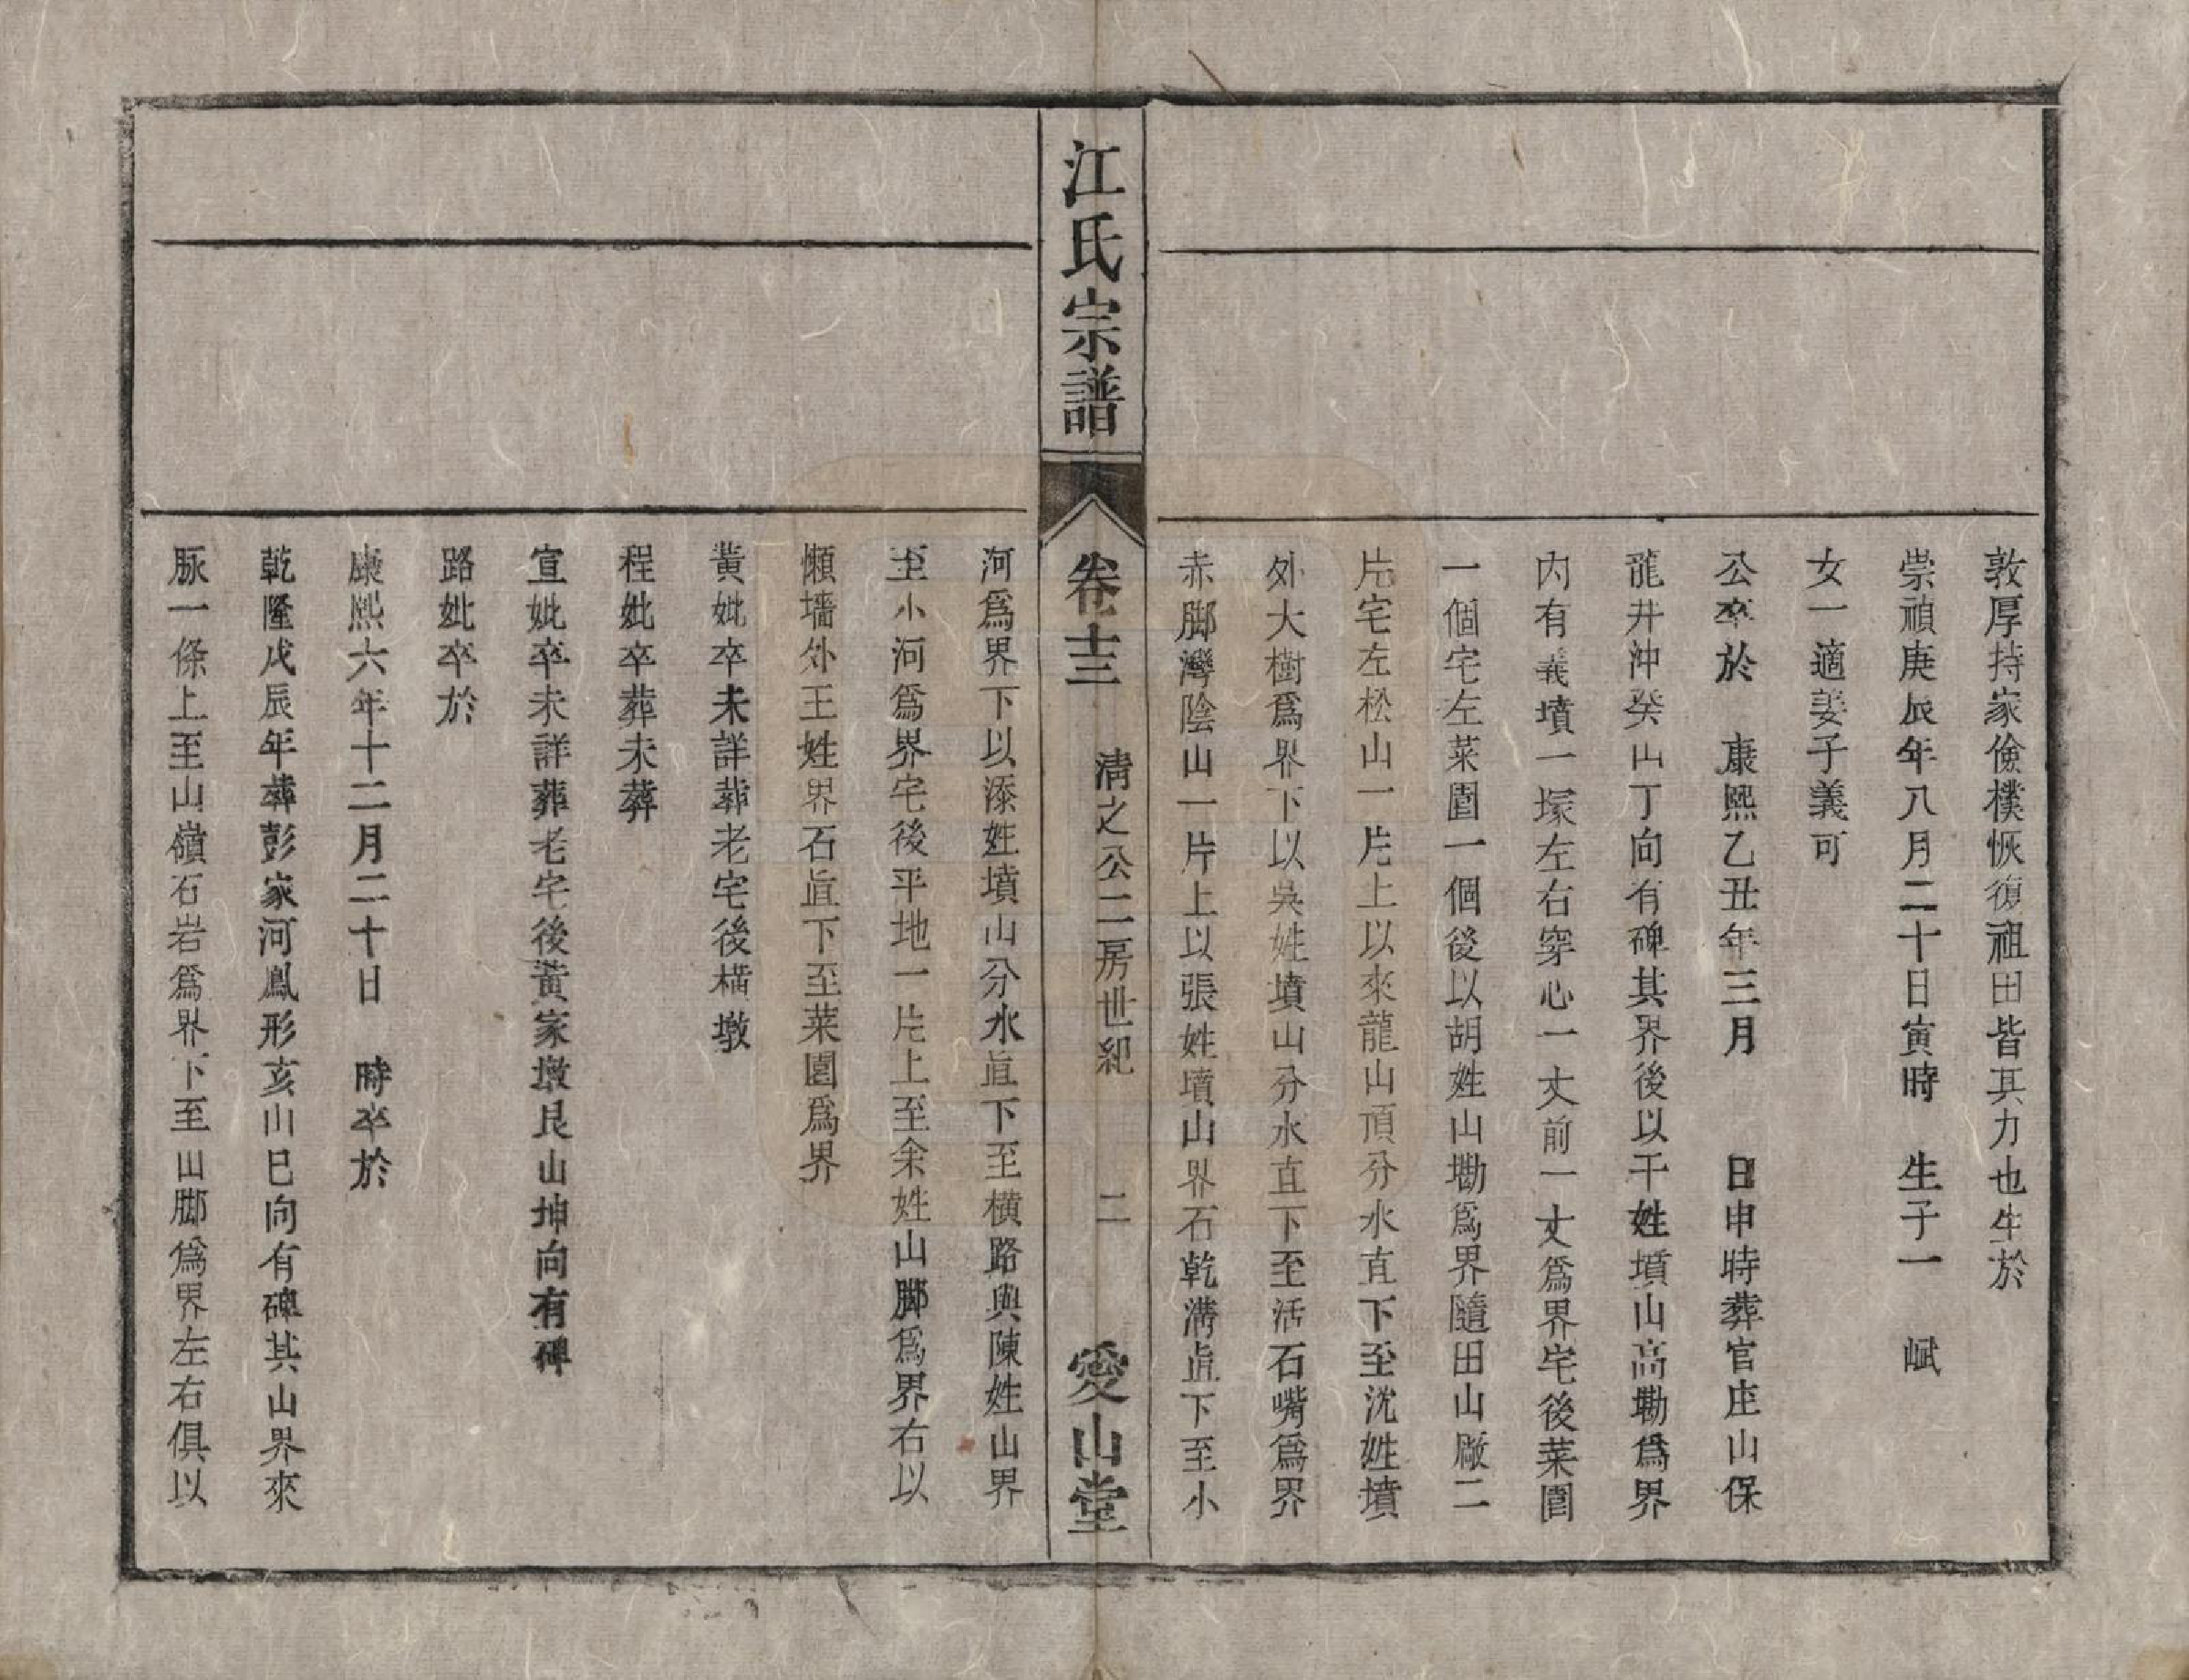 敦厚持家儉樸恢復祖田皆其力也生於
崇禎庚辰年八月二十日寅時　生子一　斌
女一適姜子義可
公卒於　康熙乙丑年三月　　日申時葬官庄山保
龍井沖癸山丁向有碑其界後以干姓墳山高墈爲界
内有義墳一塚左右穿心一丈前一丈爲界宅後菜園
一個宅左菜園一個後以胡姓山墈爲界隨田山厰二
片宅左松山一片上以來龍山頂分水直下至沈姓墳
外大樹爲界下以吳姓墳山分水直下至活石嘴爲界
赤脚灣陰山一片上以張姓墳山界石乾溝直下至小
江氏宗譜　卷十三　清之公二房世紀　二　愛山堂
河爲界下以漆姓墳山分水直下至橫路與陳姓山界
至小河爲界宅後平地一片上至余姓山脚爲界右以
懶墻外王姓界石直下至菜園爲界
黃妣卒未詳葬老宅後橫墩
程妣卒葬未葬
宣妣卒未詳葬老宅後黃家墩艮山坤向有碑
路妣卒於
康熙六年十二月二十日　時卒於
乾隆戊辰年葬彭家河鳳形亥山巳向有碑其山界來
脉一條上至山嶺石岩爲界下至山脚爲界左右俱以